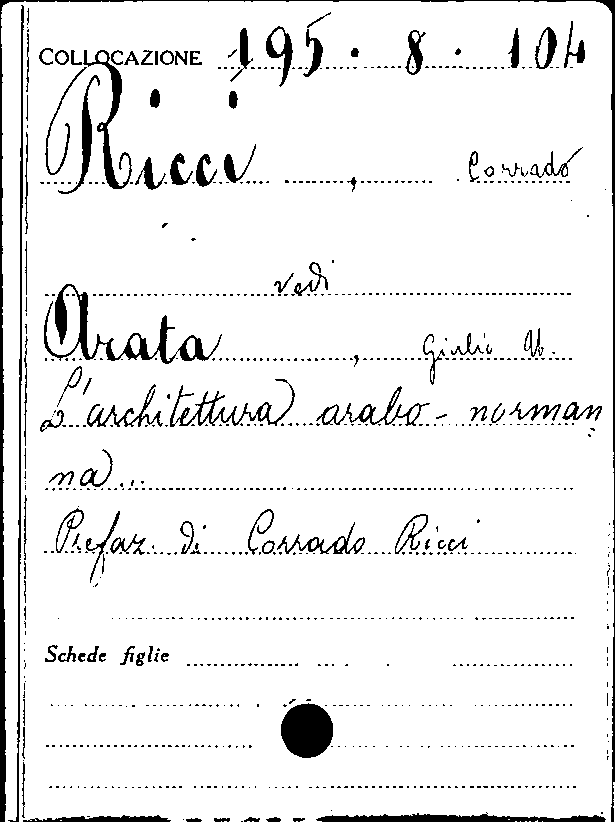 COLLOCAZIONE 195 . 8 . 104
Ricci , Corrado
vedi
Arata , Giulio U.
L'architettura arabo-norman
na...
Prefaz. di Corrado Ricci
Schede figlie